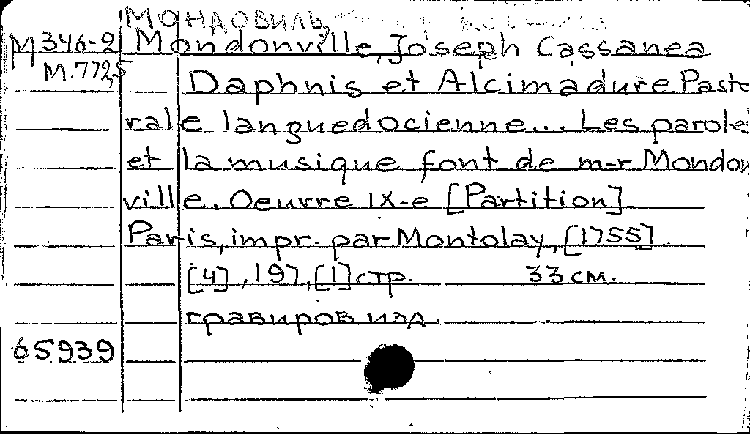 МОНДОВИЛЬ,
М 346-2 Mondonville, Joseph Cassanea
М.772,5 Daphnis et Alcimadure Pasto
rale languedocienne... Les parole
et la musique font de m-r Mondon
ville. Oeuvre IX-e [Partition]
Paris, impr. par Montolay, [1755]
[4], 197, [1] стр. 33 см.
гравиров изд
65939